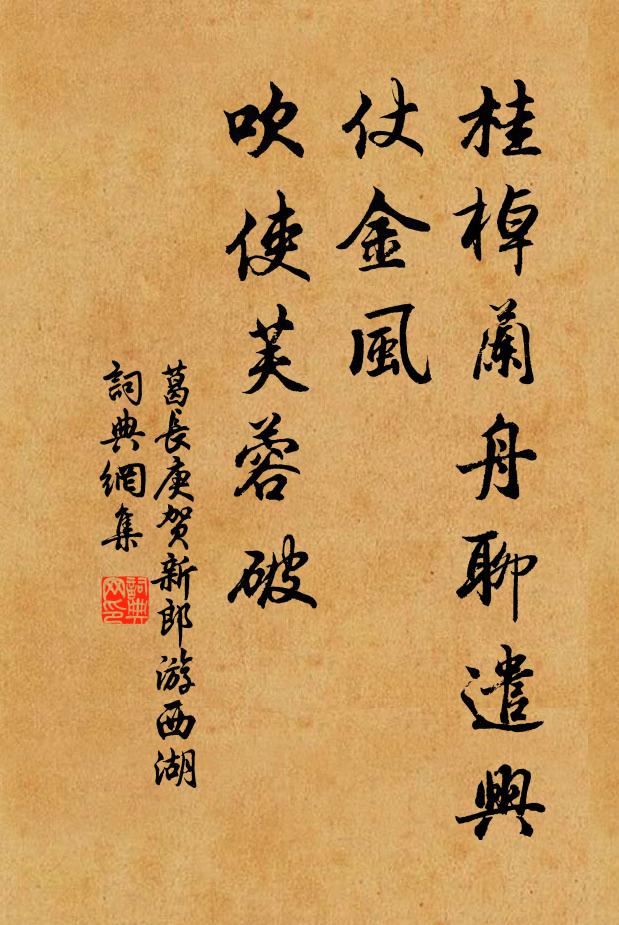 桂棹蘭舟聊遣興
仗金風
吹使芙蓉破
葛長庚賀新郎游西湖
詞典網集
詞典網印